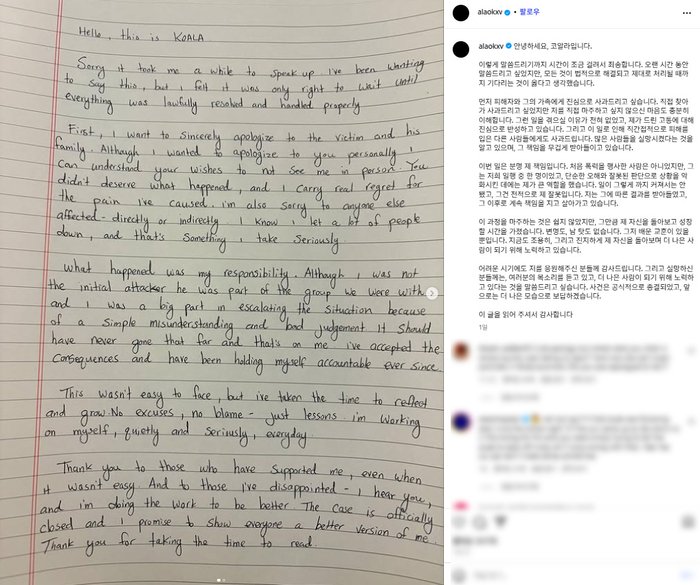 Hello, this is KOALA.
Sorry it took me a while to speak up. I've been wanting
to say this, but I felt it was only right to wait until
everything was lawfully resolved and handled properly
First, I want to sincerely apologize to the victim and his
family. Although I wanted to apologize to you personally I
can understand your wishes to not see me in person. You
didn't deserve what happened, and I carry real regret for
the pain I've caused. i'm also sorry to anyone else
affected - directly or indirectly I know I let a lot of people
down, and that's something I take seriously.
What happened was my responsibility. Although I was not
the initial attacker he was part of the group we were with
and I was a big part in escalating the situation because
of a simple misunderstanding and bad judgement It should
have never gone that far and that's on me i've accepted the
consequences and have been holding myself accountable ever since.
This wasn't easy to face, but ive taken the time to reflect
and grow. No excuses, no blame - just lessons. i'm working
on myself, quietly and seriously, everyday.
Thank you to those who have supported me, even when
it wasn't easy. And to those I've disappointed - I hear you,
and i'm doing the work to be better. The case is officially
closed and I promise to show everyone a better version of me.
Thank you for taking the time to read.
alaokxv • 팔로우
alaokxv 안녕하세요, 코알라입니다.
이렇게 말씀드리기까지 시간이 조금 걸려서 죄송합니다. 오랜 시간 동안
말씀드리고 싶었지만, 모든 것이 법적으로 해결되고 제대로 처리될 때까
지 기다리는 것이 옳다고 생각했습니다.
먼저 피해자와 그의 가족에게 진심으로 사과드리고 싶습니다. 직접 찾아
가 사과드리고 싶었지만 저를 직접 마주하고 싶지 않으신 마음도 충분히
이해합니다. 그런 일을 겪으실 이유가 전혀 없었고, 제가 드린 고통에 대해
진심으로 반성하고 있습니다. 그리고 이 일로 인해 직간접적으로 피해를
입은 다른 사람들에게도 사과드립니다. 많은 사람들을 실망시켰다는 것을
알고 있으며, 그 책임을 무겁게 받아들이고 있습니다.
이번 일은 분명 제 책임입니다. 처음 폭력을 행사한 사람은 아니었지만, 그
는 저희 일행 중 한 명이었고, 단순한 오해와 잘못된 판단으로 상황을 악
화시킨 데에는 제가 큰 역할을 했습니다. 일이 그렇게까지 커져서는 안
됐고, 그건 전적으로 제 잘못입니다. 저는 그에 따른 결과를 받아들였고,
그 이후로 계속 책임을 지고 살아가고 있습니다.
이 과정을 마주하는 것은 쉽지 않았지만, 그만큼 제 자신을 돌아보고 성장
할 시간을 가졌습니다. 변명도, 남 탓도 없습니다. 그저 배운 교훈이 있을
뿐입니다. 지금도 조용히, 그리고 진지하게 제 자신을 돌아보며 더 나은 사
람이 되기 위해 노력하고 있습니다.
어려운 시기에도 저를 응원해주신 분들께 감사드립니다. 그리고 실망하신
분들께는, 여러분의 목소리를 듣고 있고, 더 나은 사람이 되기 위해 노력하
고 있다는 것을 말씀드리고 싶습니다. 사건은 공식적으로 종결되었고, 앞
으로는 더 나은 모습으로 보답하겠습니다.
이 글을 읽어 주셔서 감사합니다
1일